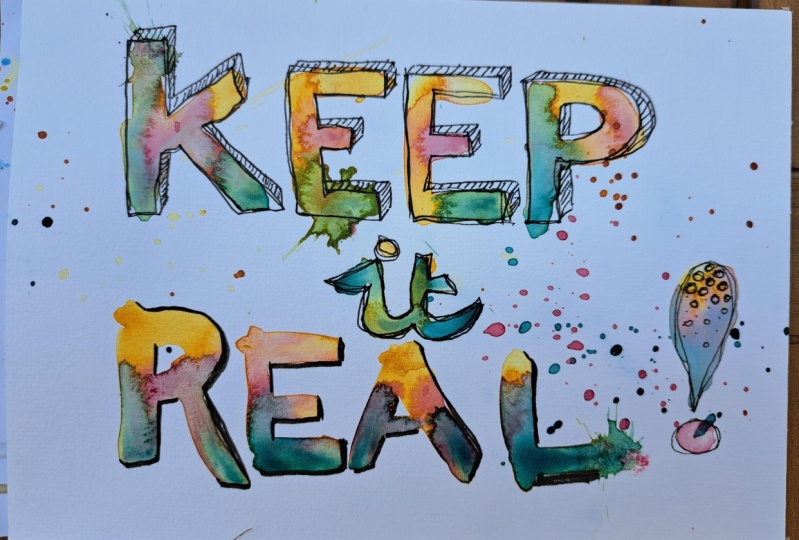 KEEP
it
REAL!